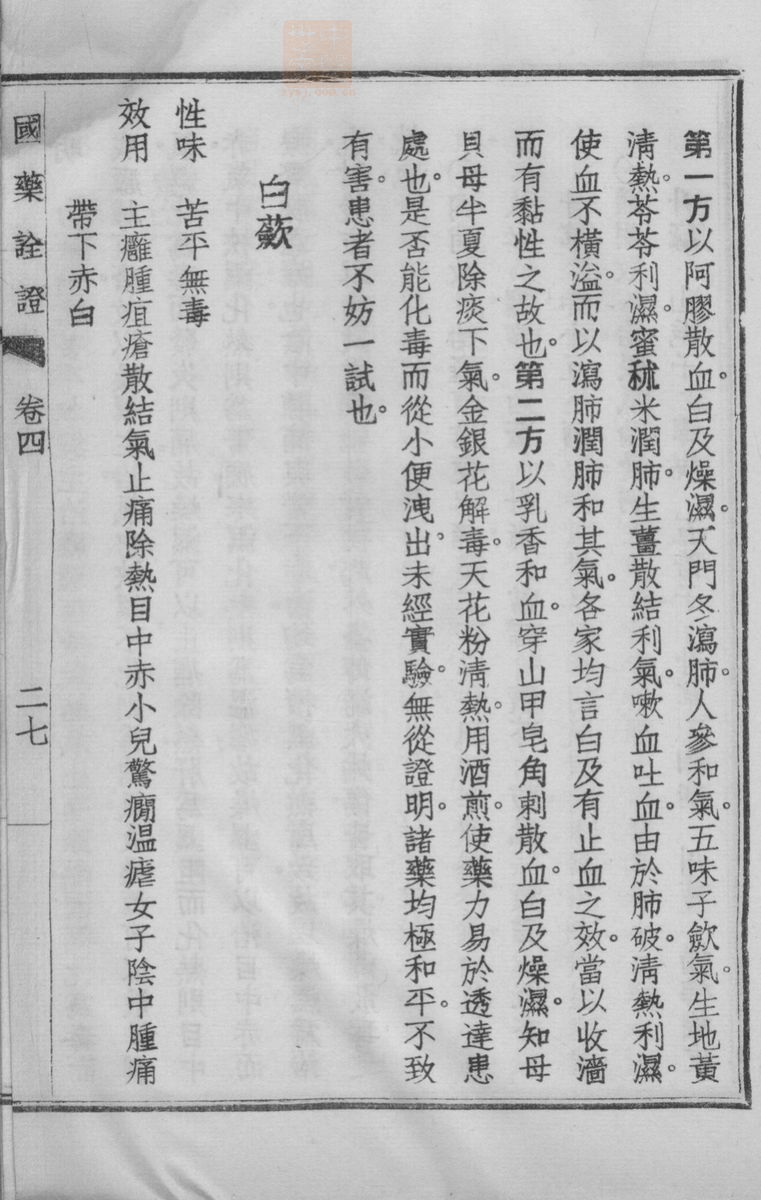 第一方以阿膠散血。白及燥濕。天門冬瀉肺。人參和氣。五味子歛氣。生地黃
清熱。苓苓利濕。蜜秫米潤肺。生薑散結利氣。嗽血吐血。由於肺破。清熱利濕。
使血不橫溢。而以瀉肺潤肺和其氣。各家均言白及有止血之效。當以收濇
而有黏性之故也。第二方以乳香和血。穿山甲皂角刺散血。白及燥濕。知母
貝母半夏除痰下氣。金銀花解毒。天花粉清熱。用酒煎。使藥力易於透達患
處也。是否能化毒而從小便洩出。未經實驗。無從證明。諸藥均極和平。不致
有害。患者不妨一試也。
白蘞
性味 苦平無毒
效用 主癰腫疽瘡散結氣止痛除熱目中赤小兒驚癇温瘧女子陰中腫痛
帶下赤白
國藥詮證 卷四 二七